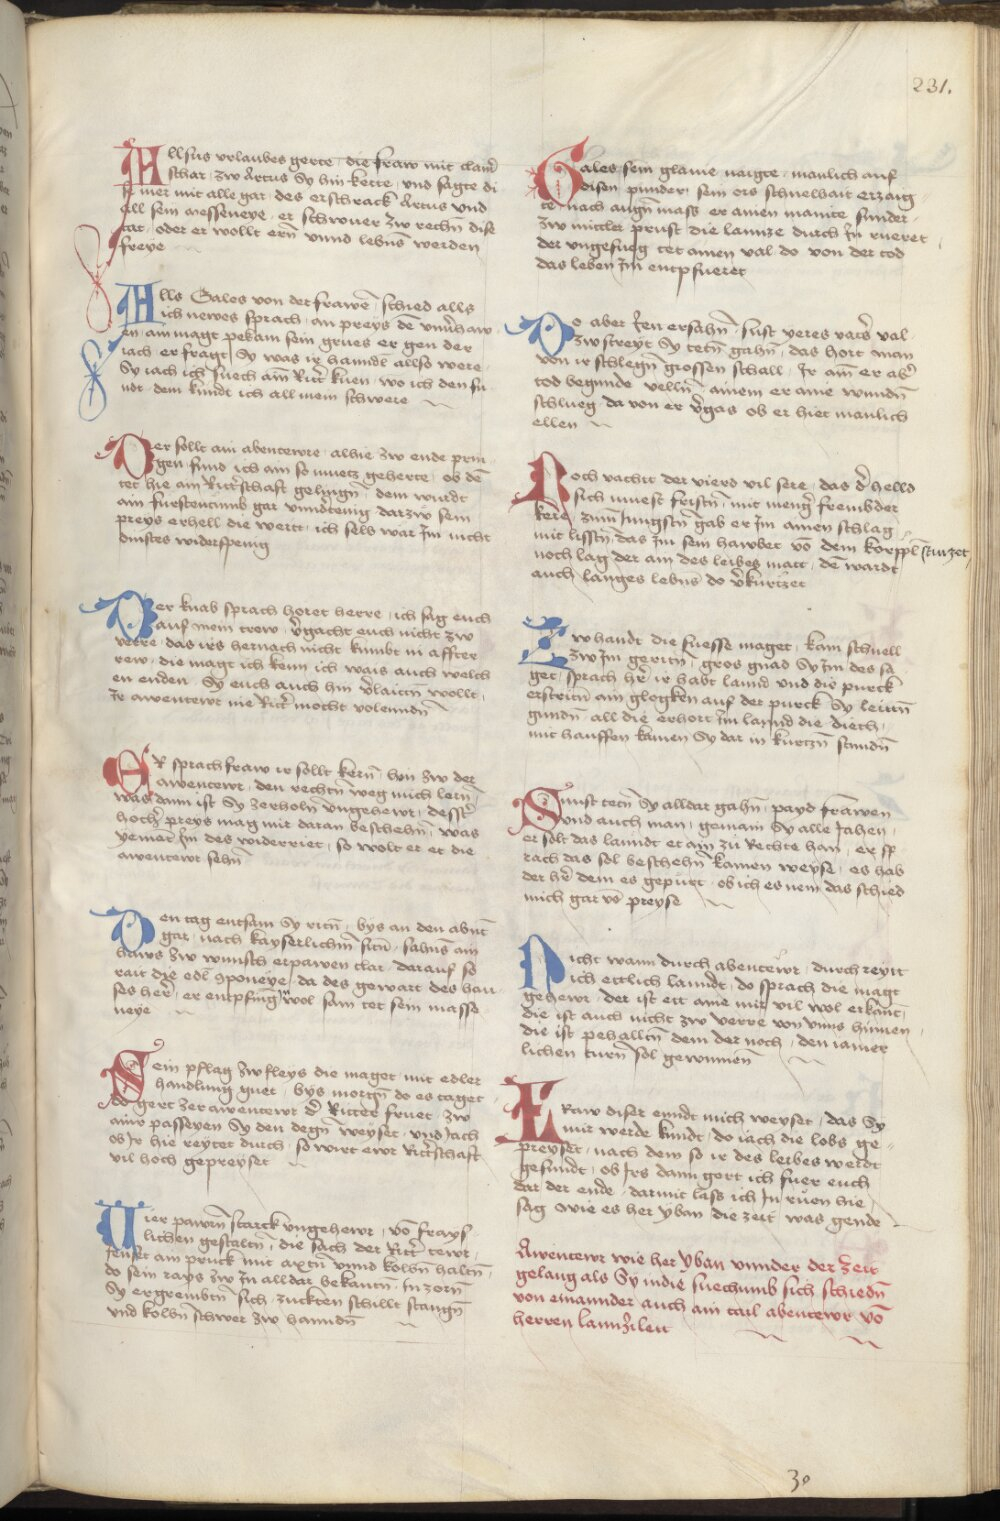 231.
Allsus urlaubes gerte · die fraw mit claur̄
schar · zw Artus Sy hin kerte · und sagte di
se mer mit alle gar · des erschrack Artus und
all sein messeneye · er schwuer zw rechn̄ dise
tat · oder er wollt ern̄ unnd lebns werden
freye
Alls Gales von der frawē schied alls
ich newes sprach · an preys de unv̄haw
en · ain magt pekam sein grues er gen der
iach · er fragt Sy was ir hanndl allso were ·
Sy iach ich suech ain Ritt̄ kuen · wo ich den fu
ndt · dem kundt ich all mein schwere
Der sollt ain abentewre · alhie zw ende prin
gen · fund ich ain so muetz geherte · ob dē
tet hie ain Rittschaft gelingn̄ · dem wurdt
ain furstentumb gar unndtenig darzw sein
preys erhell die wertt · ich sels war Im nicht
dinstes widerspenig
Der knab sprach horet herre · ich sag euch
auf mein trew · v̄gacht euch nicht zw
verre · das irs hernach nicht kumbt in affter
rew · die magt ich kenn ich wais auch welch
en enden · Sy euch auch hin v̄laittn̄ wollt ·
Ir awentewr nie Ritt̄ mocht volenndn̄
ER sprach fraw ir sollt kern̄ · hin zw der
awentewr · den rechtn̄ weg mich lern̄ ·
was dann ist Sy zerholn̄ ungehewr · desst̄
hoch̄ preys mag mir daran beschehn̄ · was
yeman Im des widerriet · so wolt er et die
awentewr sehn̄
Den tag entsam Sy ritn̄ · bys an den abnt̄
gar · nach kayserlichm̄ sitn̄ · sahns ain
haws zw wunsch erpawen clar · darauf so
rait die edl̄ ꝯponeye · da des gewart des hau
ses her̄ · er enpfing wol sam tet sein masse
neye
Sein pflag zw fleys die maget · mit edler
handlung guet · bys morgn̄ do es taget ·
do gert zer awentewr d̄ Ritter fruet · zw
ainr passeyen Sy den degn̄ weyset · und Iach
ob Ir hie reytet durch · so wirt ewr Rittschafft
vil hoch gepreyset
Vier pawrn̄ starck ungehewr · vō frays
lichen gestaltn̄ · die sach der Ritt̄ tewr ·
ienset ain pruck mit axtn̄ unnd kolbn̄ haltn̄ ·
do sein rays zw In alldar bekantn̄ · In zorn̄
Sy ergrembtn̄ sich · zuckten schillt stangn̄
und kolbn̄ schwer zw hanndn̄
Gales sein glavie naigte · manlich auf
disen punder · sein ors schnelhait erzaig
te · nach augn̄ mass er ainen mainte sunder ·
zw mittler prust die lanntze durch In rueret ·
der ungefueg tet ainen val · do von der tod
das leben Im entpfueret
Do aber Iren ersahn̄ · sust yeres vars̄ val ·
zw streyt Sy tetn̄ gahn̄ · das hort man
von ir schlegn̄ grossen schall · Ir ain er ab̄
tod begunde velln̄ · ainem er ane wundn̄
schlueg · da von er v̄gas ob er hiet manlich
ellen
Noch vachtt der vierd vil sere · das d̄ helld
sich muest fristn̄ · mit menḡ frembder
kere · zum Iungstn̄ gab er Im ainen schlag
mit listn̄ · das Im sein hawbet vō dem korppl̄ sturtzet
noch lag der ain des leibes matt · dē wardt
auch langes lebns̄ do v̄kurtzet
Zw handt die suesse maget · kam schnell
zw Im geritn̄ · gros gnad Sy Im des sa
get · sprach hr̄ ir habt lannd und die purck
erstritn̄ ain glogken auf der purck Sy leuttn̄
gundn̄ · all die erhort Im lannd die dieth ·
mit hauffen kamen Sy dar in kurtzn̄ stundn̄
Sunst tetn̄ Sy alldar gahn̄ · payd frawen
und auch man · gemain Sy alle Iahen ·
er solt das lanndt et ain zu Rechte han · er sp
rach das sol beschehn̄ kamen weyse · es hab
der hr̄ dem es gepurt · ob ich es nem das schied
mich gar vō preyse
Nicht wann durch abentewr · durchreyt
ich ettlich lanndt · do sprach die magt
gehewr · der ist ett aine mir vil wol erkant ·
die ist auch nicht zw verre von unns hinnen ·
die ist pehalltn̄ dem der noch · den iamer
lichen turn̄ sol gewinnen̄
Fraw diser enndt mich weyset · das Sy
mir werde kundt · do iach die lobs ge
preyset · nach dem so ir des leibes werdt
gesundt · ob Irs dann gert ich fuer euch
dar der ende · damit lass ich In ruen hie
sag wie es her Yban die zeit was gende
Awentewr wie her Yban unnder der Zeit
gelang als Sy indie suechumb sich schiedn̄
von einannder auch ain tail abentewr vō
herren lanntzilett
30